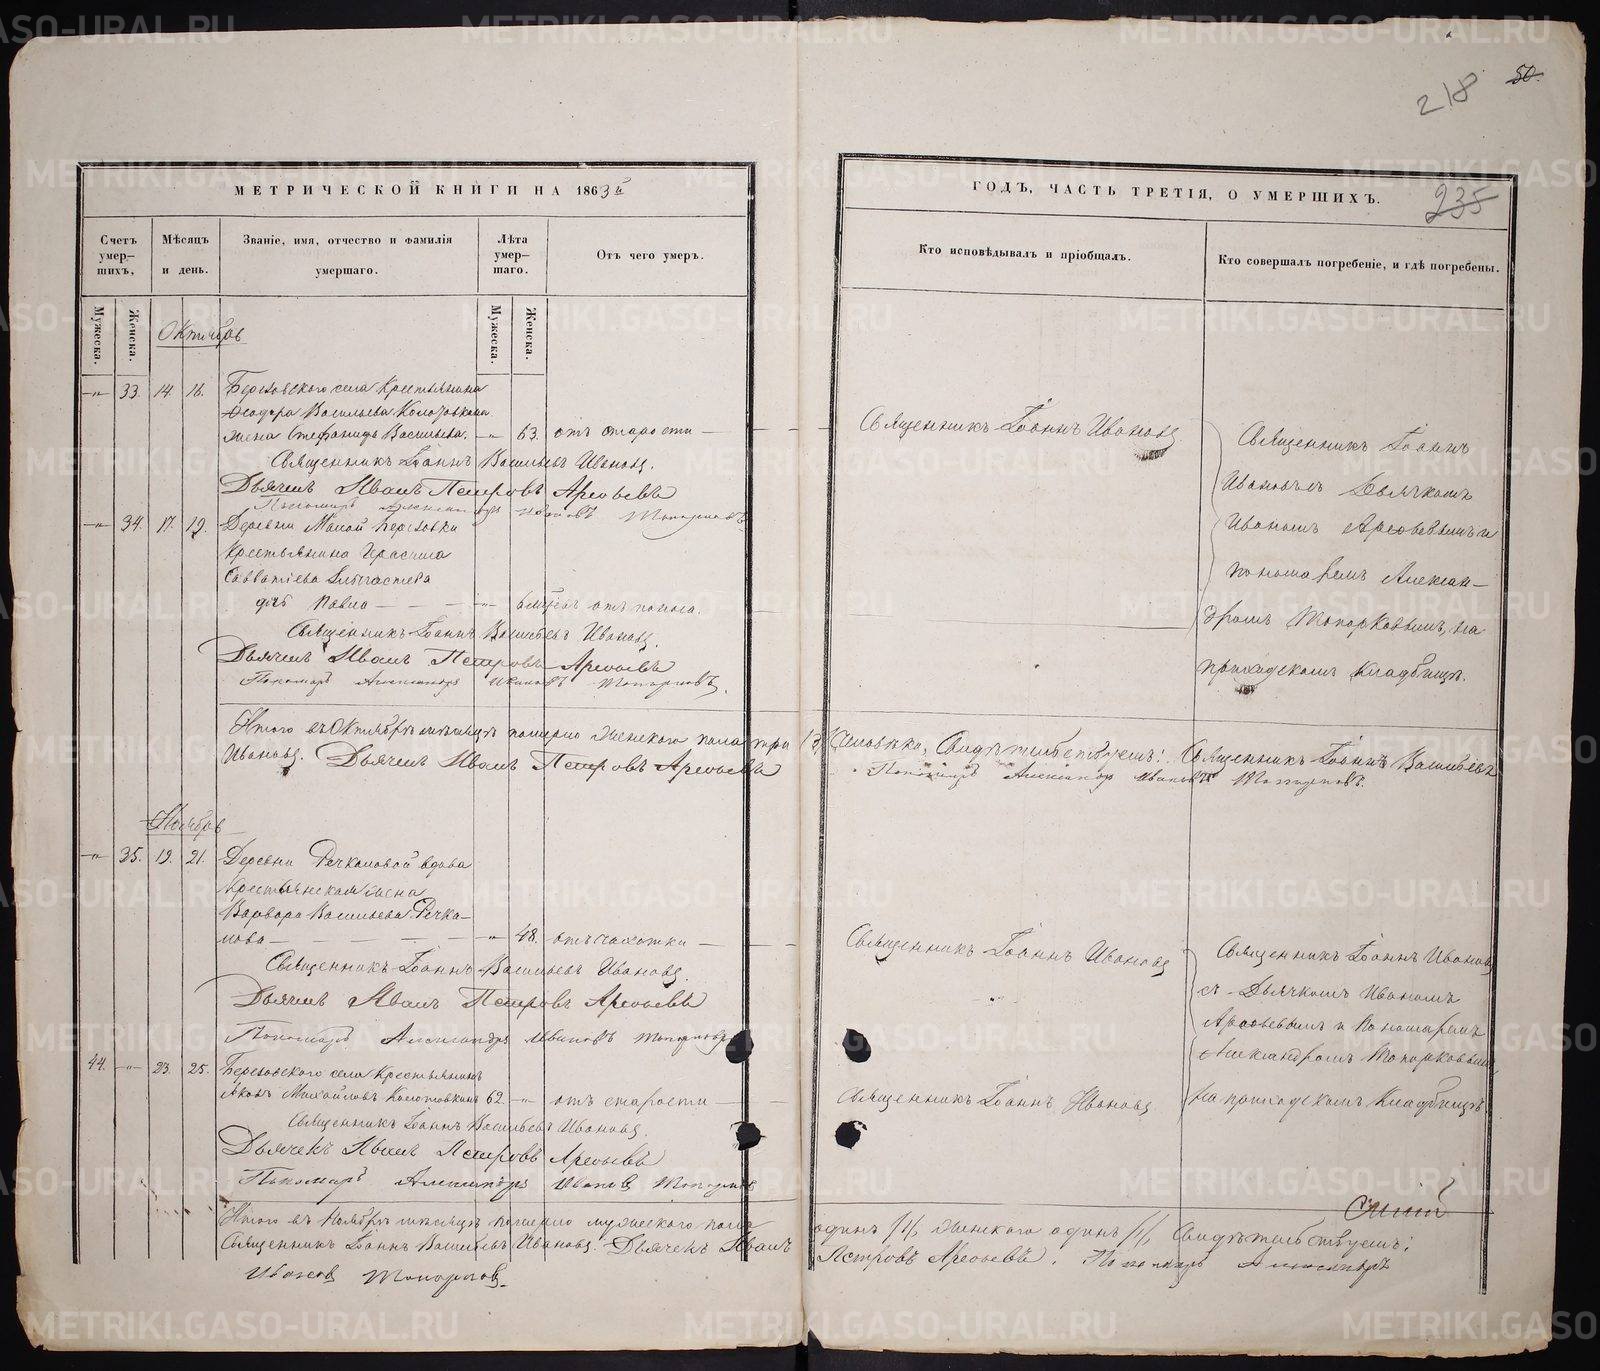 50.
218
МЕТРИЧЕСКОЙ КНИГИ НА 1863й
ГОДЪ, ЧАСТЬ ТРЕТІЯ, О УМЕРШИХЪ.
235
Счетъ умер—шихъ,
Мѣсяцъ и день.
Званіе, имя, отчество и фамилія умершаго.
Лѣта умер—шаго.
Отъ чего умеръ.
Кто исповѣдывалъ и пріобщалъ.
Кто совершалъ погребеніе, и гдѣ погребены.
Мужеска.
Женска.
Мужеска.
Женска.
Октябрь
—"— 33. 14. 16. Березовского села Крестьянина
Феодора Васильева Колотовкина
жена Стефанида Васильева. —"— 63. отъ старости —
Священникъ Іоаннъ Васильевъ Ивановъ.
Дьячекъ Иванъ Петровъ Арефьевъ
Пономарь Александръ Ивановъ Топорковъ
Священникъ Іоаннъ Ивановъ
Священникъ Іоаннъ
Ивановъ съ Дьячкомъ
Иваномъ Арефьевымъ и
пономаремъ Алексан—
дромъ Топорковымъ, на
приходскомъ кладбищѣ.
—"— 34. 17. 19. Деревни Малой Березовки
Крестьянина
Савватіева
дочь Павла — — —"— отъ поноса.
Священникъ Іоаннъ Васильевъ Ивановъ.
Дьячекъ Иванъ Петровъ Арефьевъ
Пономарь Александръ Ивановъ Топорковъ.
Итого въ Октябрѣ мѣсяцѣ померло женского пола три /3/ человѣка, Свидѣтельствуемъ: Священникъ Іоаннъ Васильевъ
Ивановъ. Дьячекъ Иванъ Петровъ Арефьевъ Пономарь Александръ Ивановъ Топорковъ.
Ноябрь
—"— 35. 19. 21. Деревни Речкаловой вдова
крестьянская жена
Варвара Васильева Речка—
лова — — —"— 48. отъ чахотки —
Священникъ Іоаннъ Васильевъ Ивановъ.
Дьячекъ Иванъ Петровъ Арефьевъ
Пономарь Александръ Ивановъ Топорковъ
Священникъ Іоаннъ Ивановъ
Священникъ Іоаннъ Ивановъ
съ Дьячкомъ Иваномъ
Арефьевымъ и Пономаремъ
Александромъ Топорковымъ,
на приходскомъ Кладбищѣ.
44. —"— 23. 25. Березовского села Крестьянинъ
Яковъ Михайловъ Колотовкинъ 62 —"— отъ старости —
Священникъ Іоаннъ Васильевъ Ивановъ.
Дьячекъ Иванъ Петровъ Арефьевъ
Пономарь Александръ Ивановъ Топорковъ
Священникъ Іоаннъ Ивановъ
Итого въ Ноябрѣ мѣсяцѣ померло мужеского пола одинъ /1/, женского одинъ /1/, Свидѣтельствуемъ:
Священникъ Іоаннъ Васильевъ Ивановъ. Дьячекъ Иванъ Петровъ Арефьевъ. Пономарь Александръ
Ивановъ Топорковъ.
METRIKI.GASO-URAL.RU